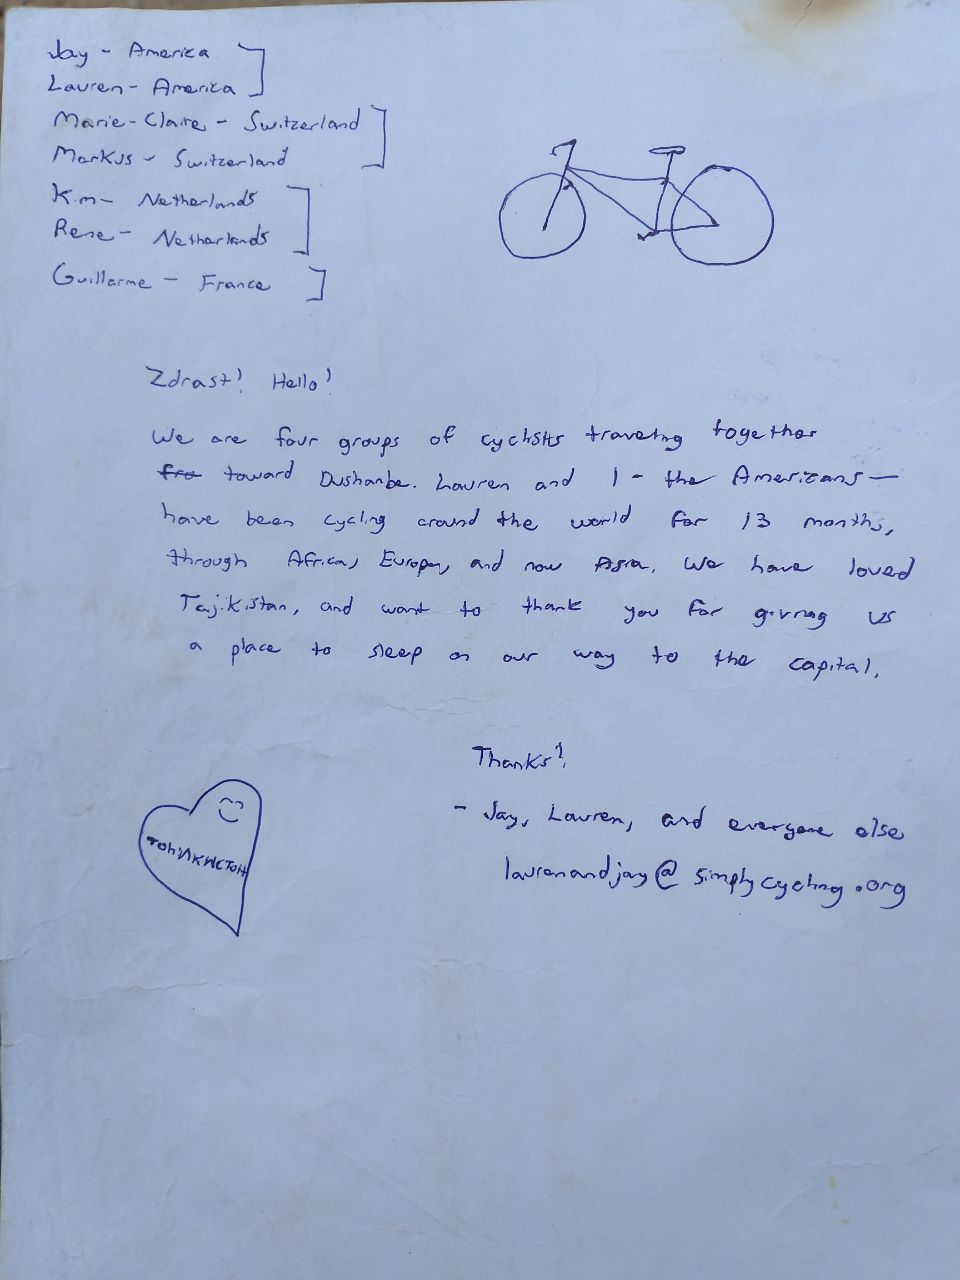 Jay - America
Lauren - America
Marie-Claire - Switzerland
Markus - Switzerland
Kim - Netherlands
Rene - Netherlands
Guillarme - France
Zdrast! Hello!
We are four groups of cyclists traveling together
fro toward Dushanbe. Lauren and I - the Americans -
have been cycling around the world for 13 months,
through Africa, Europe, and now Asia. We have loved
Tajikistan, and want to thank you for giving us
a place to sleep on our way to the capital.
Thanks!
- Jay, Lauren, and everyone else
laurenandjay@simplycycling.org